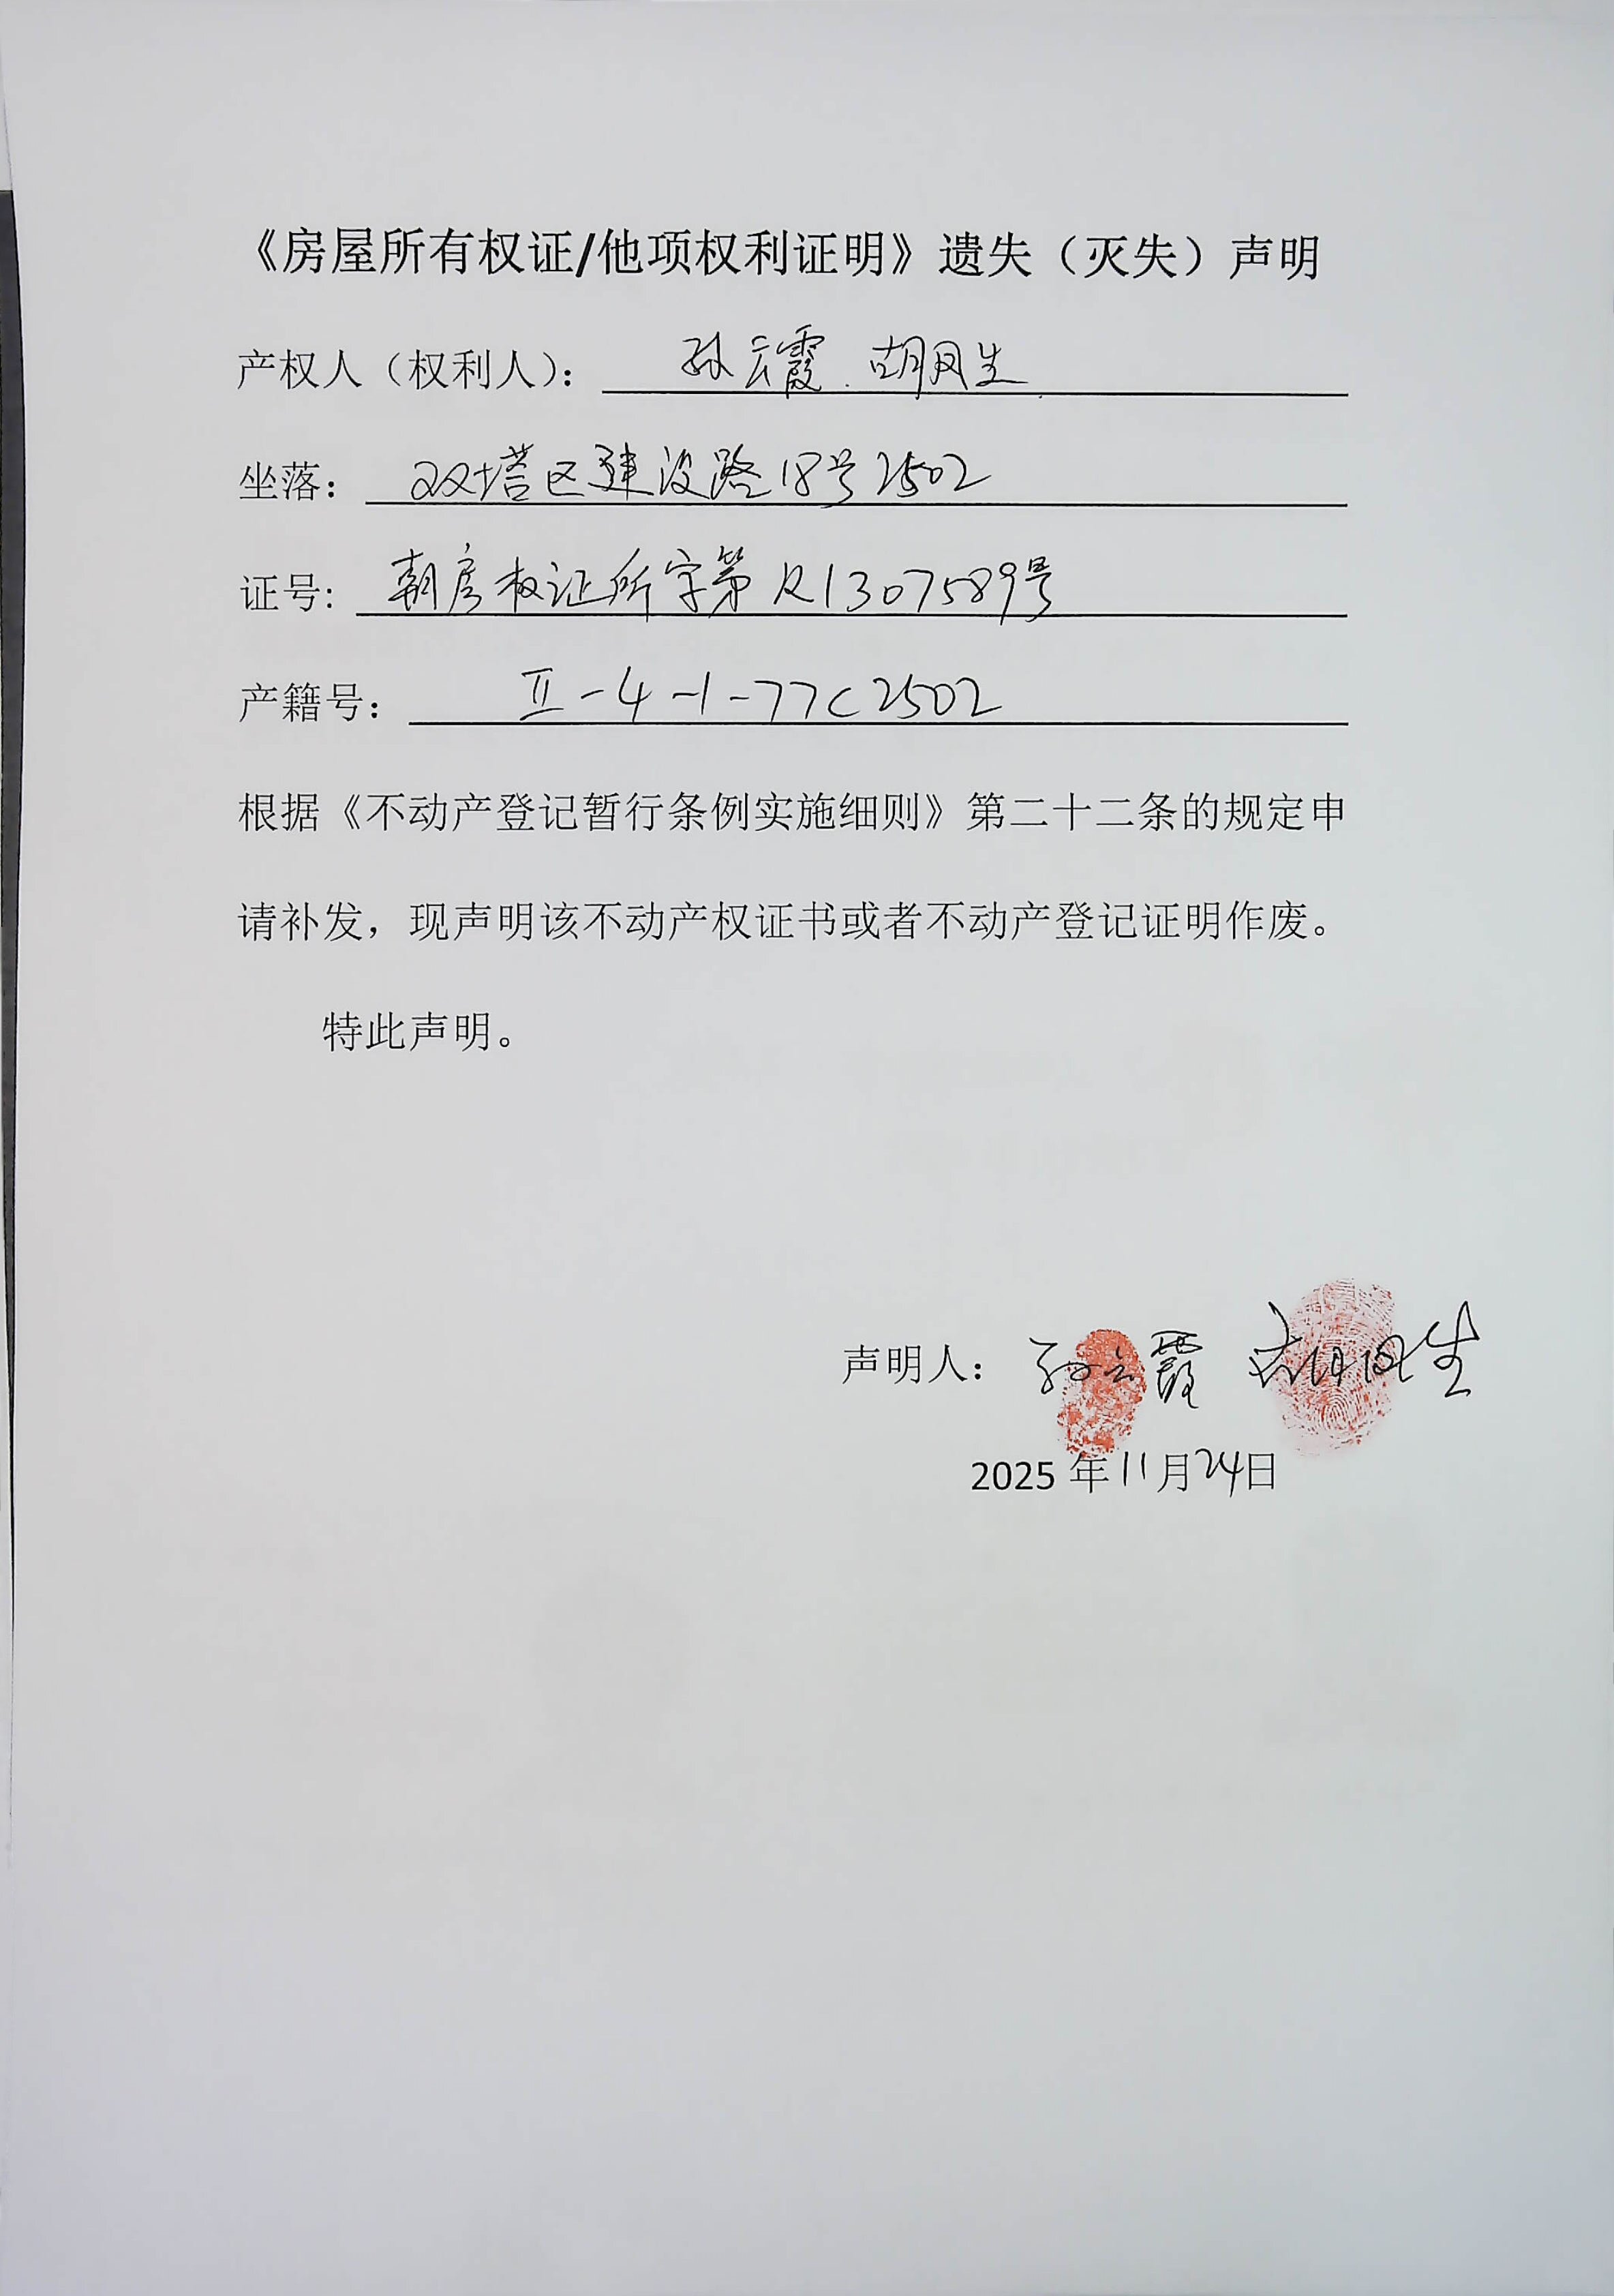 《房屋所有权证/他项权利证明》遗失（灭失）声明
产权人（权利人）： 孙云霞、胡凤生
坐落： 双塔区建设路18号2502
证号: 朝房权证所字第R1307589号
产籍号： Ⅱ-4-1-77C2502
根据《不动产登记暂行条例实施细则》第二十二条的规定申
请补发，现声明该不动产权证书或者不动产登记证明作废。
特此声明。
声明人： 孙云霞 胡凤生
2025 年11月24日